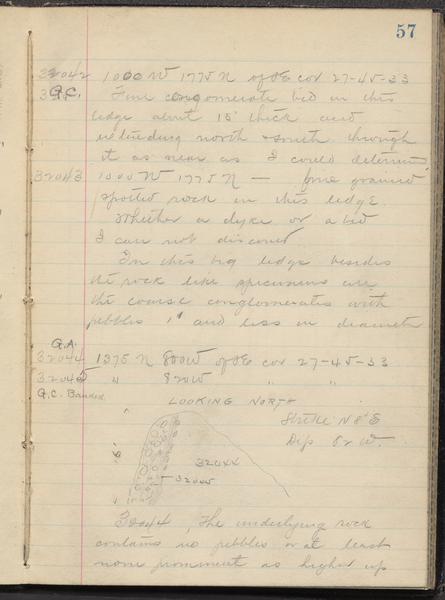 57
32042 1000 W 1775 N of SE cor 27-45-33
G.C. Fine conglomerate bed in this
ledge about 15' thick and
extending north & south through
it as near as I could determin
32043 1000 W 1775 N — fine grained
spotted rock in this ledge.
Whether a dyke or a bed
I can not discover
In this big ledge besides
the rock like specimens are
the coarse conglomerates with
pebbles 1" and less in diameter
G.A.
32044 1375 N 800 W of SE cor 27-45-33
32045 " 820 W " "
G.C. Banded
LOOKING NORTH
Strike N 8° E
Dip 82 W.
32044
32045
32044, The underlying rock
contains no pebbles or at least
none prominent as higher up